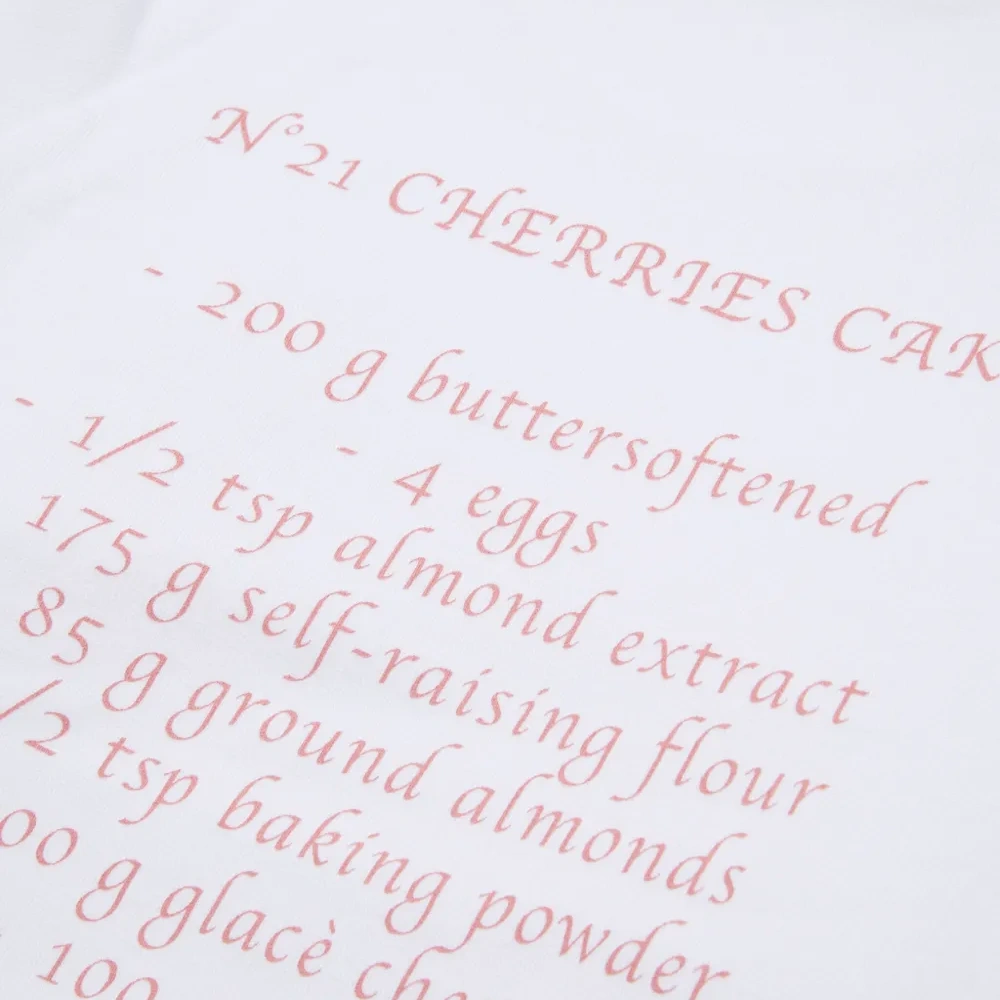 N°21 CHERRIES CAK
- 200 g buttersoftened
- 4 eggs
- 1/2 tsp almond extract
175 g self-raising flour
85 g ground almonds
/2 tsp baking powder
00 g glacè che
100